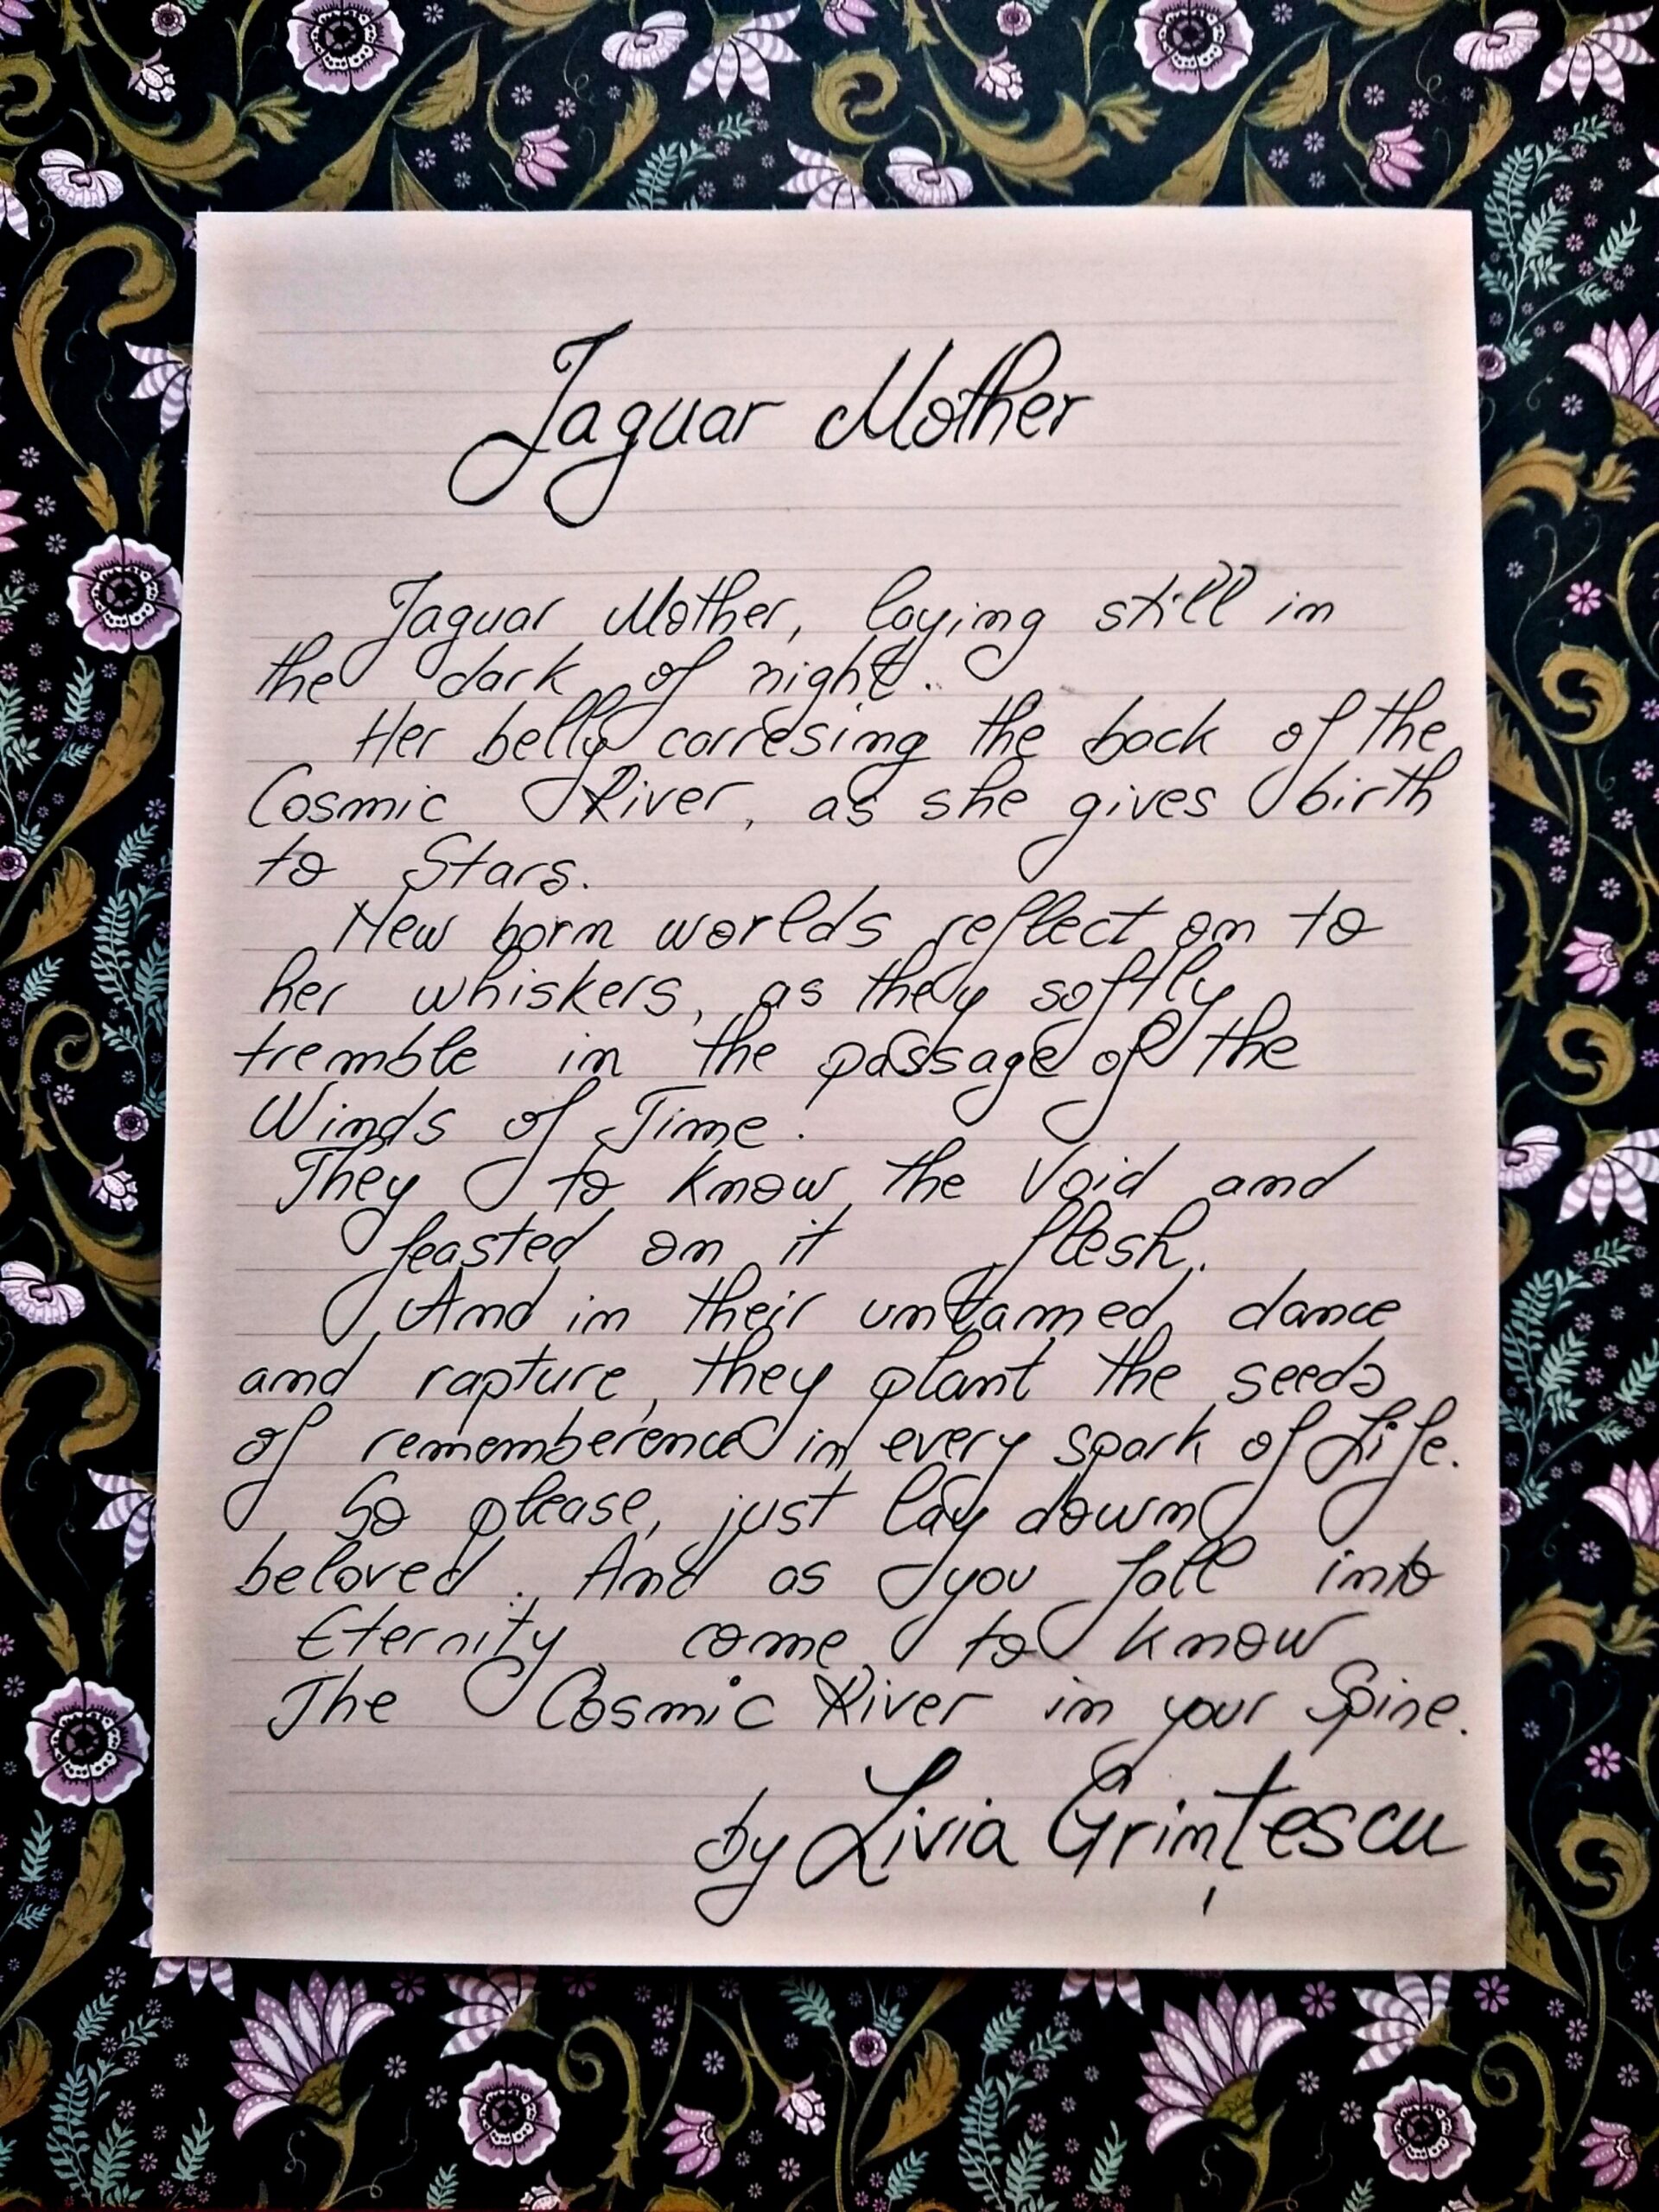 Jaguar Mother
Jaguar Mother, laying still in
the dark of night.
Her belly corresing the back of the
Cosmic River, as she gives birth
to Stars.
New born worlds reflect on to
her whiskers, as they softly
tremble in the passage of the
Winds of Time.
They to know the Void and
feasted on it flesh.
And in their untamed dance
and rapture, they plant the seeds
of rememberence in every spark of Life.
So please, just lay down
beloved. And as you fall into
Eternity, come to know
The Cosmic River in your Spine.
by Livia Grimțescu